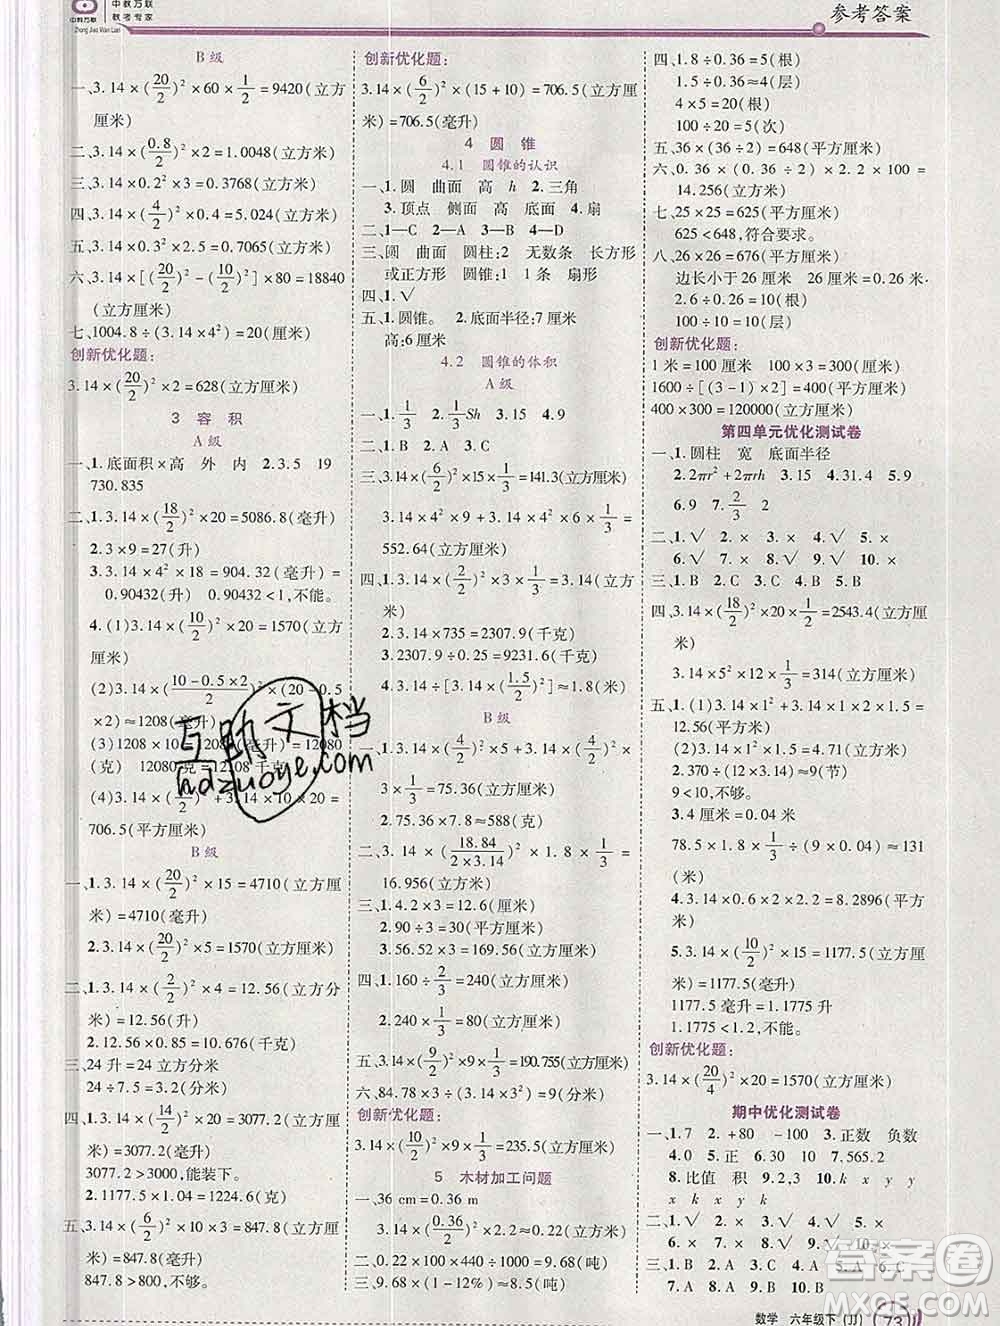 中教万联
教考专家
Zhong Jiao Wan Lian
参考答案
B 级
一、3.14×(20/2)²×60×1/2=9420(立方
厘米)
二、3.14×(0.8/2)²×2=1.0048(立方米)
三、3.14×0.2²×3=0.3768(立方米)
四、3.14×(4/2)²×0.4=5.024(立方米)
五、3.14×0.3²×2.5=0.7065(立方米)
六、3.14×[(20/2)²-(10/2)²]×80=18840
(立方厘米)
七、1004.8÷(3.14×4²)=20(厘米)
创新优化题:
3.14×(20/2)²×2=628(立方厘米)
3 容 积
A 级
一、1.底面积×高 外 内 2.3.5 19
730.835
二、1.3.14×(18/2)²×20=5086.8(毫升)
2.3×9=27(升)
3.3.14×4²×18=904.32(毫升)=
0.90432(升) 0.90432<1,不能。
4.(1)3.14×(10/2)²×20=1570(立方厘
米)
(2)3.14×(10-0.5×2/2)²×(20-0.5
×2)≈1208(毫升)
(3)1208×10=12080
(克) 12080克=
(4)3.14×(10/2)²+3.14×10×20=
706.5(平方厘米)
B 级
一、1.3.14×(20/2)²×15=4710(立方厘
米)=4710(毫升)
2.3.14×(20/2)²×5=1570(立方厘米)
二、1.3.14×(2/2)²×4=12.56(立方分
米)=12.56(升)
2.12.56×0.85=10.676(千克)
三、24升=24立方分米
24÷7.5=3.2(分米)
四、1.3.14×(14/2)²×20=3077.2(立方厘
米)=3077.2(毫升)
3077.2>3000,能装下。
2.1177.5×1.04=1224.6(克)
五、3.14×(6/2)²×10×3=847.8(立方厘
米)=847.8(毫升)
847.8>800,不够。
创新优化题:
3.14×(6/2)²×(15+10)=706.5(立方厘
米)=706.5(毫升)
4 圆 锥
4.1 圆锥的认识
一、1.圆 曲面 高 h 2.三角
3.顶点 侧面 高 底面 4.扇
二、1.C 2.A 3.B 4.D
三、圆 曲面 圆柱:2 无数条 长方形
或正方形 圆锥:1 1条 扇形
四、1.√
五、1.圆锥。 2.底面半径:7厘米
高:6厘米
4.2 圆锥的体积
A 级
一、1.1/3 2.1/3Sh 3.15 4.9
二、1.B 2.A 3.C
三、3.14×(6/2)²×15×1/3=141.3(立方厘米)
3.14×(4/2)²×10+3.14×6²×6×1/3=
552.64(立方厘米)
四、1.3.14×(2/2)²×3×1/3=3.14(立方厘
米)
2.3.14×735=2307.9(千克)
3.2307.9÷0.25=9231.6(千克)
4.3.14÷[3.14×(1.5/2)²]≈1.8(米)
B 级
一、1.3.14×(4/2)²×5+3.14×(4/2)²×
3×1/3=75.36(立方厘米)
2.75.36×7.8≈588(克)
二、3.14×(18.84/2×3.14)²×1.8×1/3=
16.956(立方米)
三、1.4.2×3=12.6(厘米)
2.90÷3=30(立方厘米)
3.56.52×3=169.56(立方厘米)
四、1.160÷2/3=240(立方厘米)
2.240×1/3=80(立方厘米)
五、3.14×(9/2)²×9×1/3=190.755(立方厘米)
六、84.78×3÷(3.14×3²)=9(厘米)
创新优化题:
3.14×(10/2)²×9×1/3=235.5(立方厘米)
5 木材加工问题
一、36 cm=0.36 m
3.14×(0.36/2)²×2.2≈0.22(立方米)
二、0.22×100×0.44=9.68(吨)
三、9.68×(1-12%)≈8.5(吨)
四、1.8÷0.36=5(根)
1.8÷0.45=4(层)
4×5=20(根)
100÷20=5(次)
五、36×(36÷2)=648(平方厘米)
六、0.36×(0.36÷2)×2.2×100=
14.256(立方米)
七、25×25=625(平方厘米)
625<648,符合要求。
八、26×26=676(平方厘米)
边长小于26厘米 26厘米=0.26米
2.6÷0.26=10(根)
10×10=100(根)
创新优化题:
1米=100厘米 100×3=300(厘米)
1600÷[(3-1)×2]=400(平方厘米)
400×300=120000(立方厘米)
第四单元优化测试卷
一、1.圆柱 宽 底面半径
2.2πr²+2πrh 3.21 4.3 5.12
6.9 7.2/3 2
二、1.√ 2.× 3.× 4.√ 5.×
6.√ 7.√ 8.√ 9.√ 10.×
三、1.B 2.C 3.C 4.D
四、3.14×(18/2)²×20×1/2=2543.4(立方厘
米)
3.14×5²×12×1/3=314(立方厘米)
五、1.(1)3.14×1²+3.14×1×2×1.5=
12.56(平方米)
(2)3.14×1²×1.5=4.71(立方米)
2.370÷(12.56×3)≈9(节)
9<10,不够。
3.4厘米=0.04米
78.5×1.2×1/3÷(6×0.04)≈131
(米)
4.3.14×0.6×2×2+0.2=8.2896(平方
米)
5.3.14×(10/2)²×30×1/2=1177.5(立方
厘米)=1177.5(毫升)
1177.5毫升=1.1775升
1.1775<1.2,不能。
创新优化题:
3.14×(20/4)²×20=1570(立方厘米)
期中优化测试卷
一、1.7 2.+80 -100 3.正数 负数
4.2 5.正 6.150 7.y x
8.比值 积 9.2,3 10.x y y
x k x y k
二、1.√ 2.× 3.√ 4.√ 5.√
6.× 7.× 8.× 9.√ 10.×
三、1.B 2.C 3.D 4.B 5.A 6.C
7.A 8.A 9.B 10.B
互助文档
hdzuoye.com
答案卷
MXQE.COM
数学 六年级下(JJ) 73